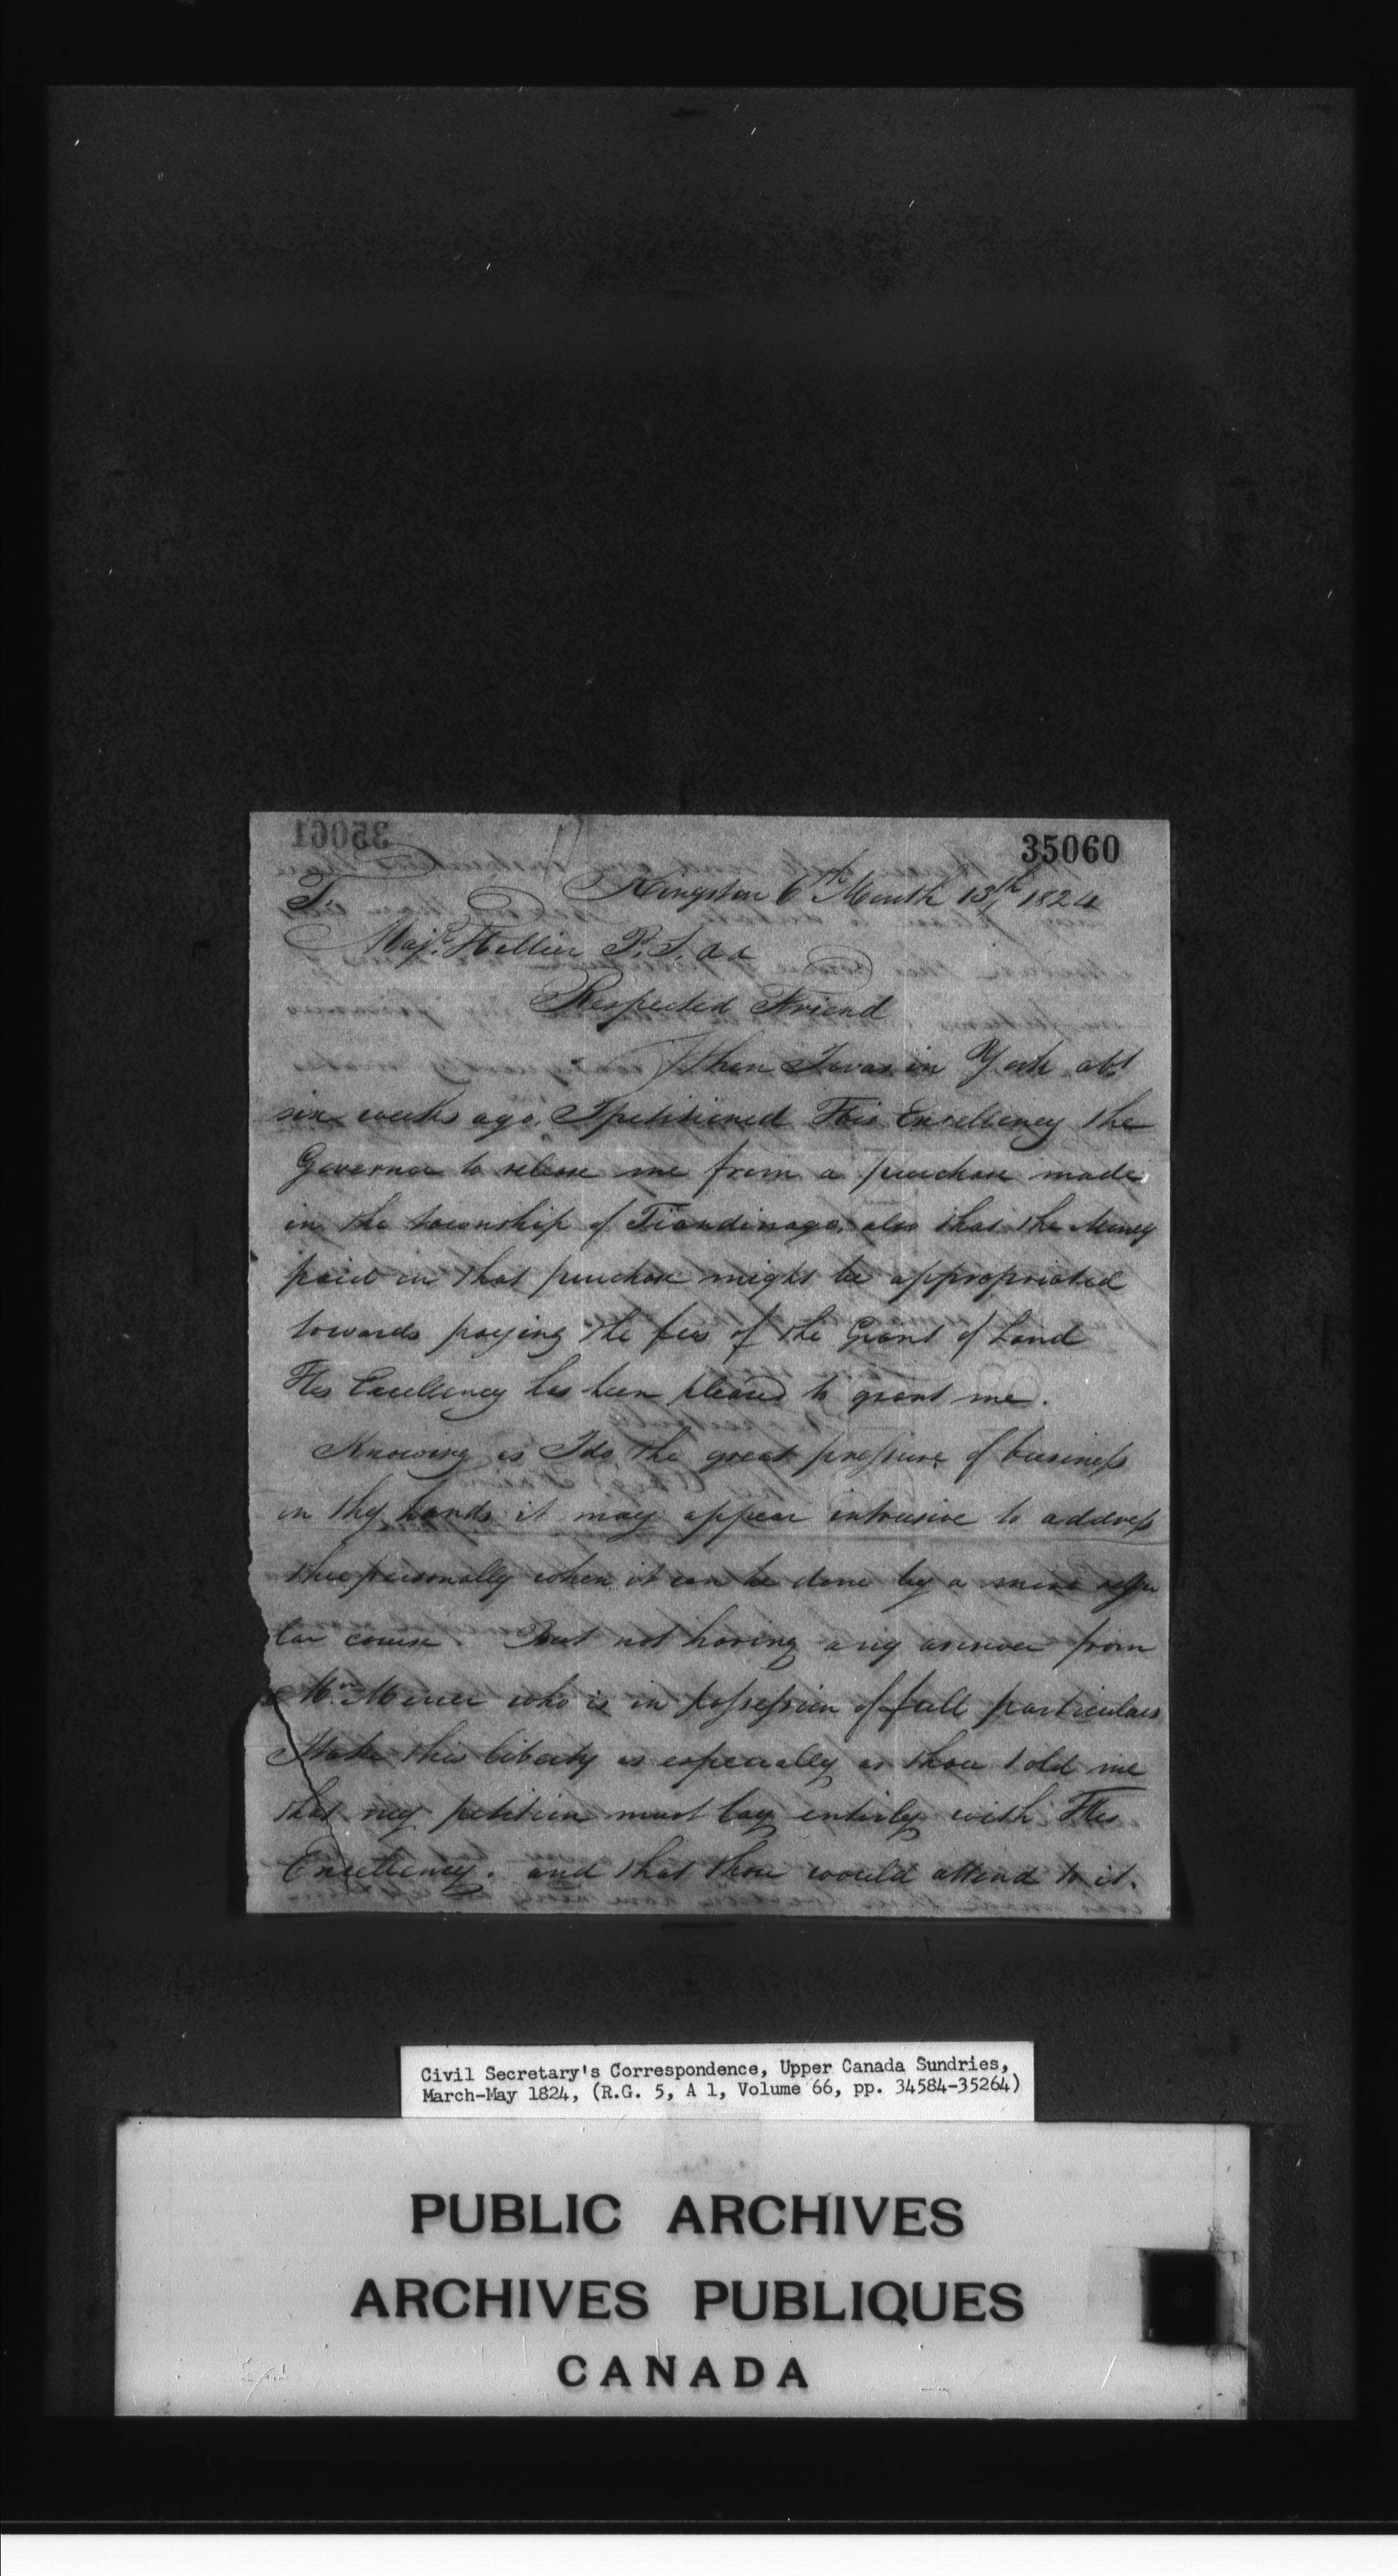 35061
35060
Kingston 6th Month 13th 1824
To
Majr. Hellier P. S. &c
Respected Friend
When I was in York abt
six weeks ago, I petitioned His Excellency the
Governor to release me from a purchase made
in the township of Tiandinago, also that the Money
paid in that purchase might be appropriated
towards paying the fees of the Grant of Land
His Excellency has been pleased to grant me.
Knowing as I do the great pressure of business
in thy hands it may appear intrusive to address
thee personally when it can be done by a more regu
lar course. But not having any answer from
Mr. Mercer who is in possession of full particulars
I take this liberty as especially as thou told me
that my petition must lay entirly with His
Excellency. and that thou would attend to it.
Civil Secretary's Correspondence, Upper Canada Sundries,
March-May 1824, (R.G. 5, A 1, Volume 66, pp. 34584-35264)
PUBLIC ARCHIVES
ARCHIVES PUBLIQUES
CANADA